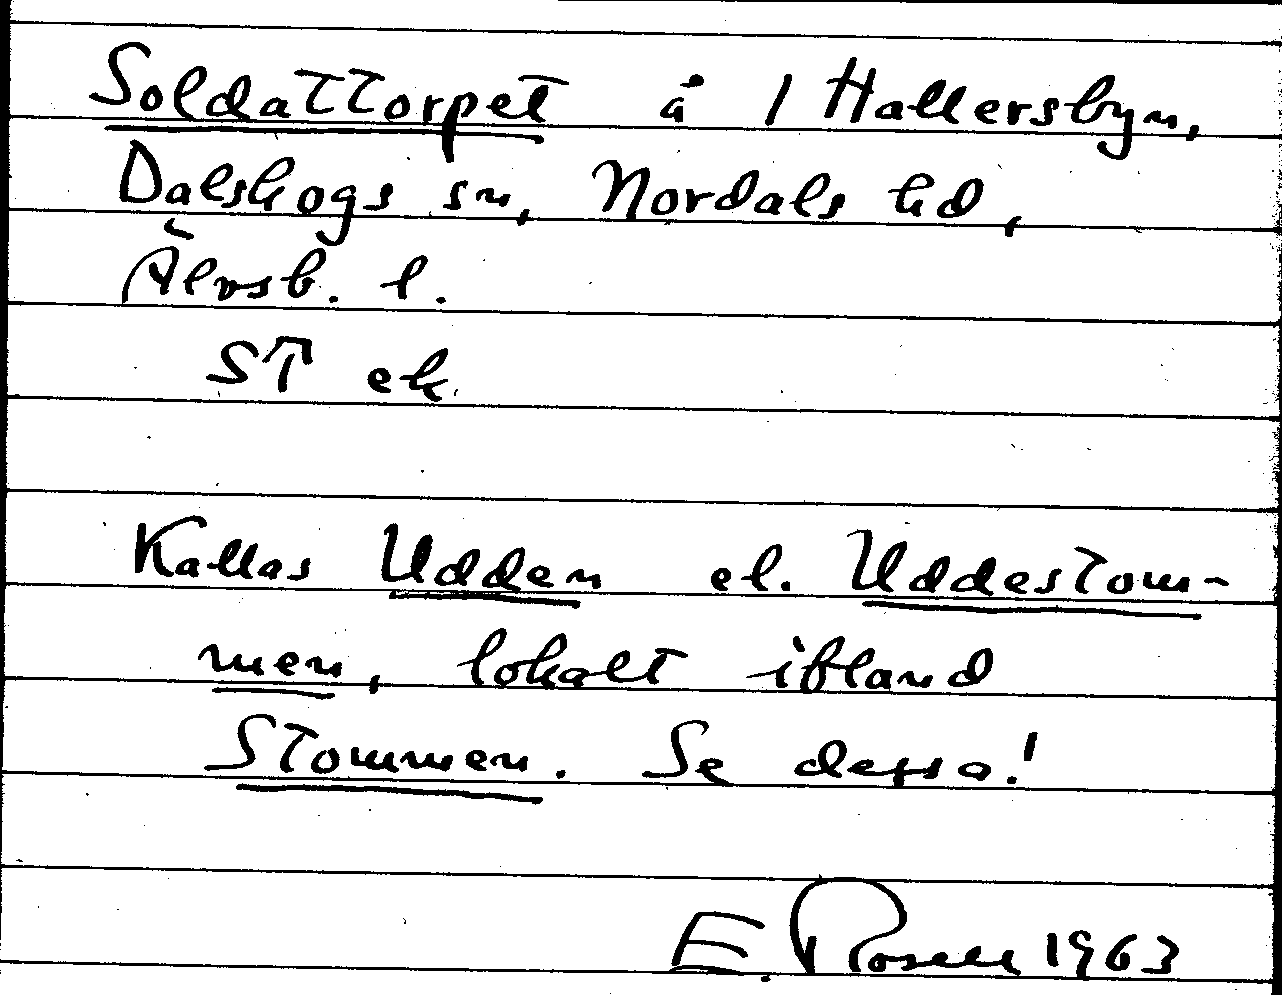 Soldattorpet å 1 Hallersbyn,
Dalskogs sn, Nordals hd,
Älvsb. l.
ST ek
Kallas Udden el. Uddestom-
men, lokalt ibland
Stommen. Se dessa!
E. Rosell 1963